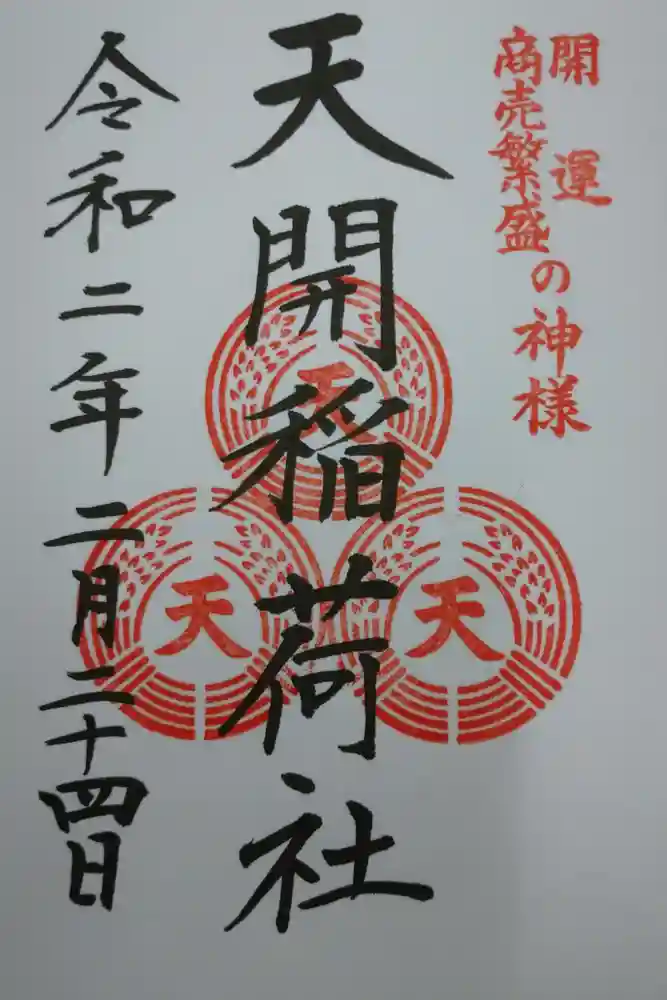 開運
商売繁盛
の神様
天開稲荷社
天
天
天
令和二年二月二十四日